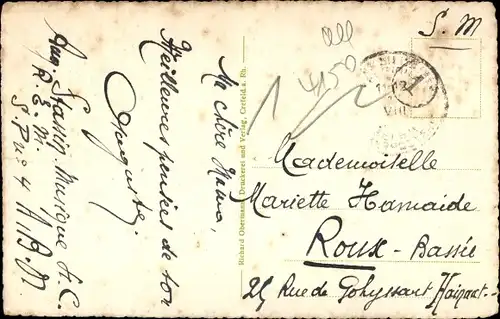 S. M
all
450
Ma chère Nana,
Meilleures pensées de ton
Auguste.
Musique H. C.
R. E. M.
S. P. n° 4 A. B. N
Richard Obermann, Druckerei und Verlag, Crefeld a. Rh.
VIII
Mademoiselle
Mariette Hamaide
Roux - Bassée
25 Rue de Gohyssart Hainaut